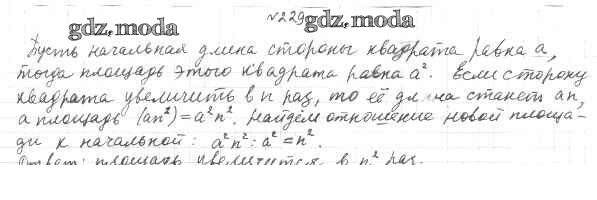 gdz.moda №229 gdz.moda
Пусть начальная длина стороны квадрата равна a,
тогда площадь этого квадрата равна a². Если сторону
квадрата увеличить в n раз, то её длина станет an,
а площадь (an²)=a²n². Найдём отношение новой площа-
ди к начальной: a²n²:a²=n².
Ответ: площадь увеличится в n² раз.